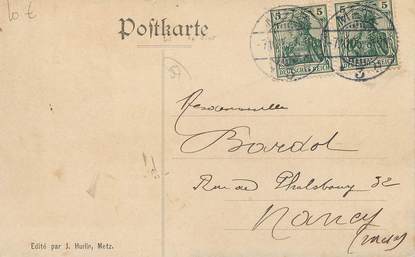 10 €
Postkarte
5 5
5 5
DEUTSCHES REICH
DEUTSCHES REICH
Mademoiselle
Bardot
Rue de Phalsbourg 32
Nancy
Edité par J. Hurlin, Metz.